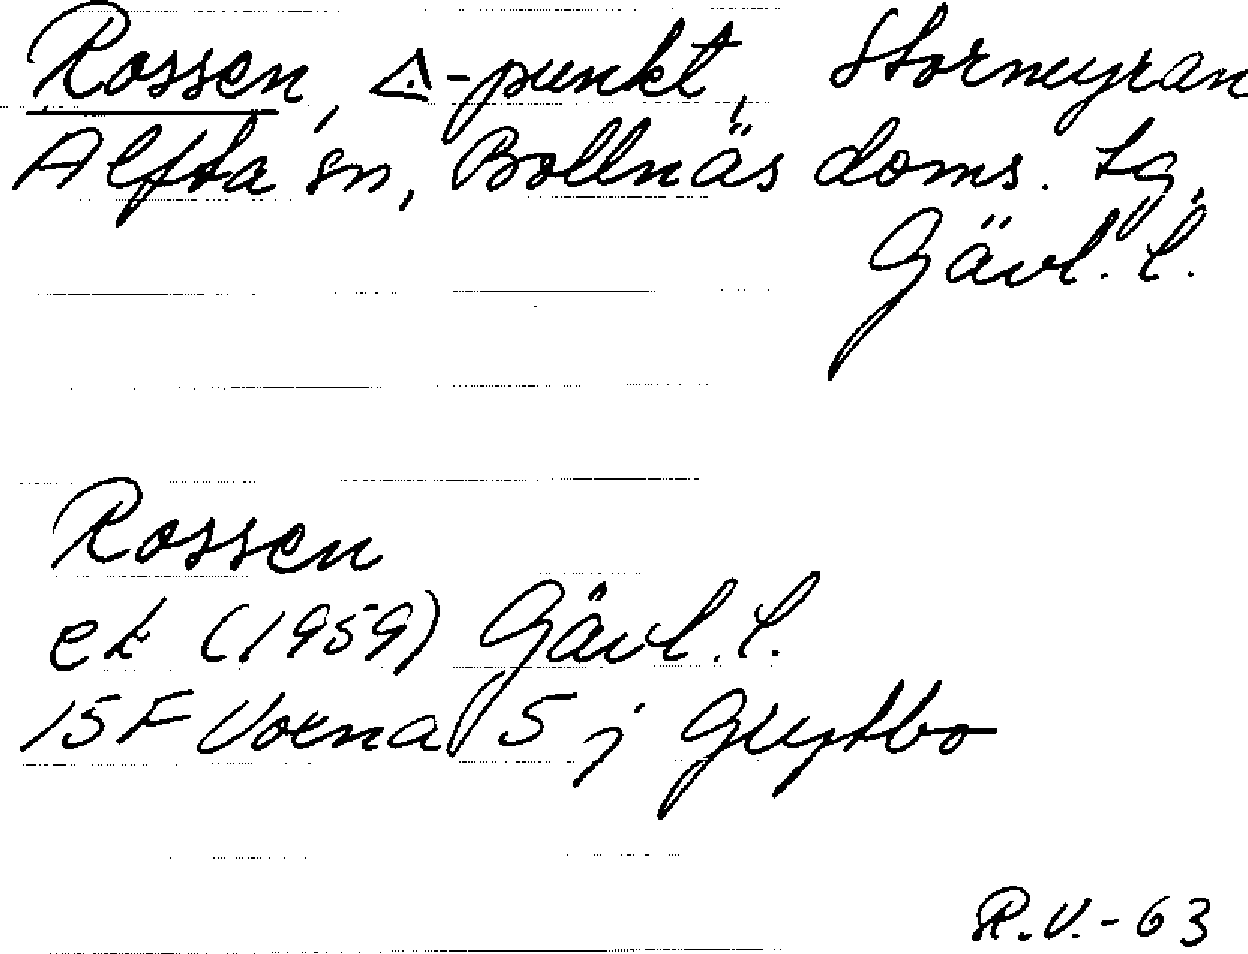 Rossen, △-punkt, Stormyran
Alfta sn, Bollnäs doms. tg,
Gävl. l.
Rossen
ek (1959) Gävl. l.
15F Voxna 5 j Grytbo
R.V.-63